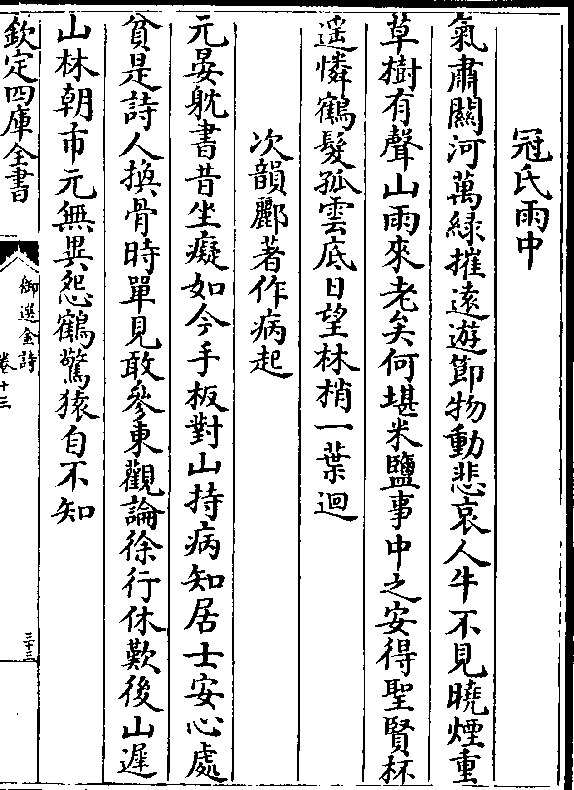 冠氏雨中
氣肅關河萬緑摧遠遊節物動悲哀人牛不見曉煙重
草樹有聲山雨來老矣何堪米鹽事中之安得聖賢杯
遥憐鶴髮孤雲底日望林梢一葉迴
次韻酈著作病起
元晏躭書昔坐癡如今手板對山持病知居士安心處
貧是詩人換骨時單見敢參東觀論徐行休歎後山遲
山林朝市元無異怨鶴驚猿自不知
欽定四庫全書
御選金詩
卷十三
三十三